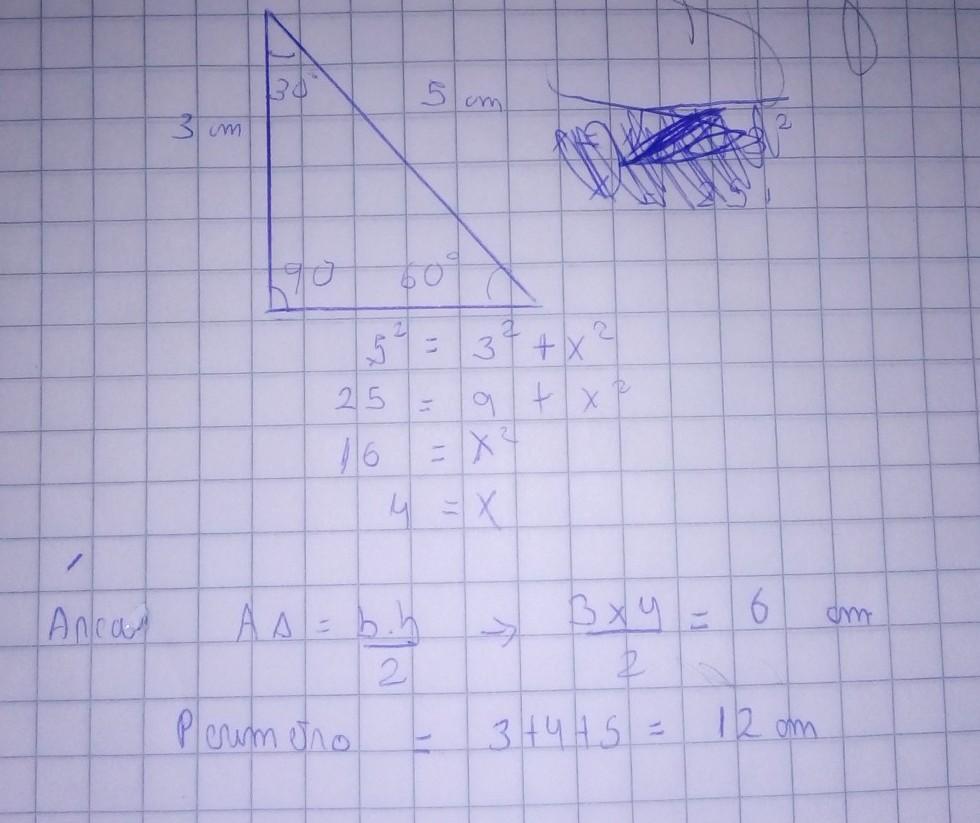 30°
5 cm
3 cm
90 60°
5² = 3² + x²
25 = 9 + x²
16 = x²
4 = x
Área AΔ = b.h/2 → 3x4/2 = 6 cm
Perímetro = 3+4+5 = 12 cm